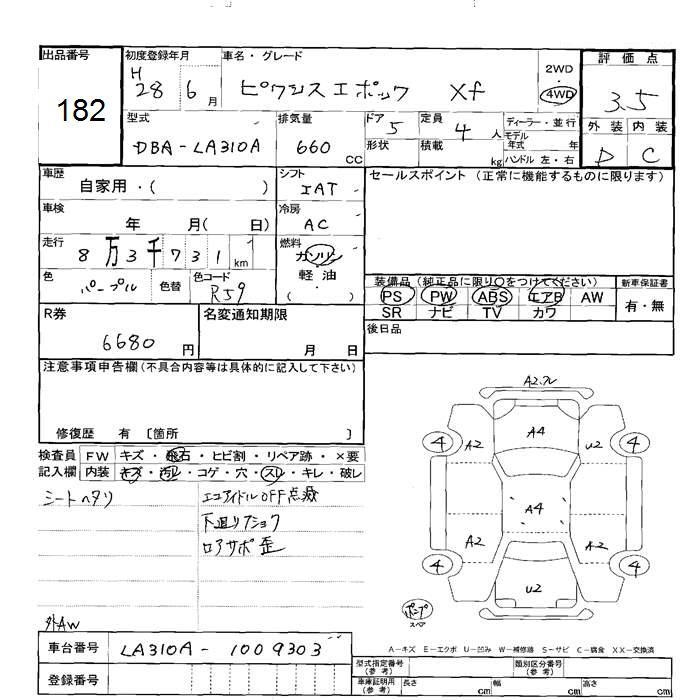 出品番号 初度登録年月 車名・グレード 2WD 評価点
182 H28 6月 ピクシスエポック Xf 4WD 3.5
型式 排気量 ドア 定員 ディーラー・並行 外装 内装
DBA-LA310A 660cc 5 4人 モデル年式 年 D C
形状 積載 kg ハンドル 左・右
車歴 シフト セールスポイント (正常に機能するものに限ります)
自家用・( ) IAT
車検 冷房
年 月( 日) AC
走行 燃料
8万3千731km ガソリン
色 色替 色コード 軽油
パープル R59 ( )
装備品 (純正品に限り○をつけてください) 新車保証書
PS PW ABS エアB AW 有・無
SR ナビ TV カワ
R券 名変通知期限 後日品
6680円 月 日
注意事項申告欄 (不具合内容等は具体的に記入して下さい)
修復歴 有 [箇所 ]
検査員 FW キズ・飛石・ヒビ割・リペア跡・×要
記入欄 内装 キズ・汚レ・コゲ・穴・スレ・キレ・破レ
シートヘタリ エコアイドルOFF点滅
下廻りフショク
ロアサポ歪
外AW
A2.ワレ
4 A2 A4 U2 4
A4
A2 A2
4 U2 4
ポンプ
スペア
A-キズ E-エクボ U-凹み W-補修跡 S-サビ C-腐食 XX-交換済
車台番号 LA310A-1009303
型式指定番号 (参考) 類別区分番号 (参考)
登録番号 車庫証明用 (参考) 長さ cm 幅 cm 高さ cm